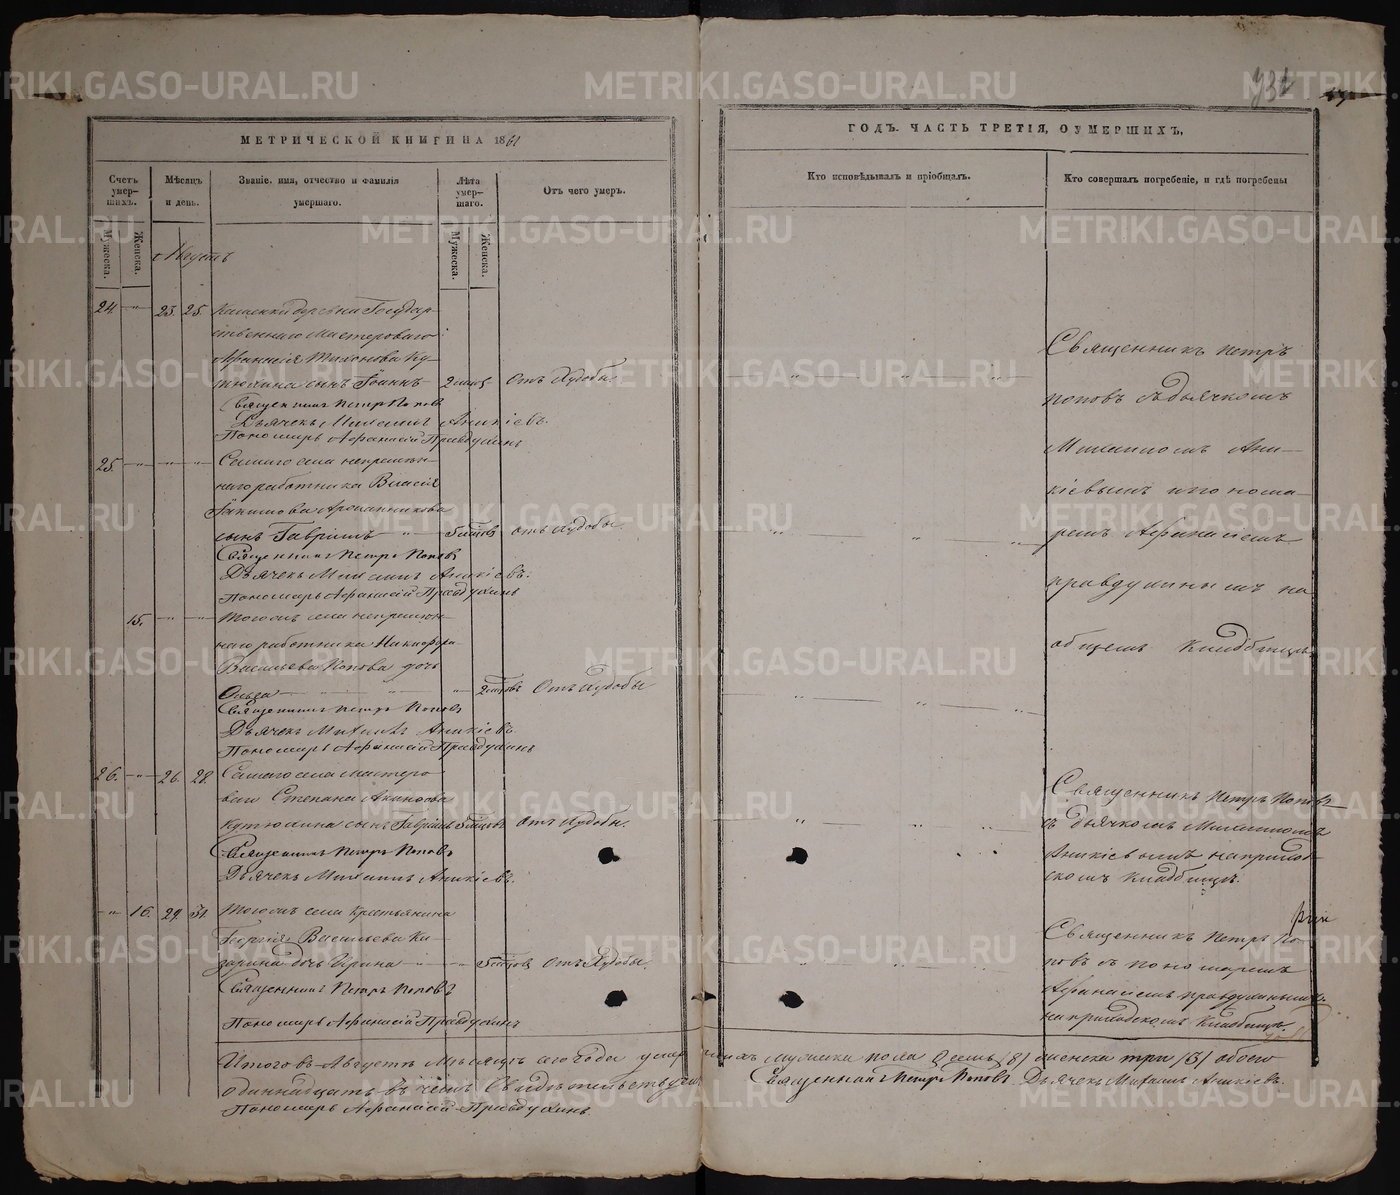 932
МЕТРИЧЕСКОЙ КНИГИ НА 1861
ГОДЪ. ЧАСТЬ ТРЕТІЯ, О УМЕРШИХЪ,
Счетъ умер-шихъ.
Мѣсяцъ и день.
Званіе, имя, отчество и фамилія умершаго.
Лѣта умер-шаго.
Отъ чего умеръ.
Кто исповѣдывалъ и пріобщалъ.
Кто совершалъ погребеніе, и гдѣ погребены
Мужеска.
Женска.
Мужеска.
Женска.
Августъ
24. 23. 25.
Государ-
ственнаго Мастероваго
Афанасія Тихонова Ку-
тюхина сынъ Іоаннъ 2 мѣсяц Отъ Худобы.
Священникъ Петръ Поповъ
Дьячекъ Михаилъ Аникіевъ.
Пономарь Афанасій Правдухинъ
25. Сашаго села непремѣн-
наго работника Власія
сынъ Гавріилъ Отъ Худобы.
Священникъ Петръ Поповъ
Дьячекъ Михаилъ Аникіевъ.
Пономарь Афанасій Правдухинъ
Священникъ Петръ
Поповъ съ дьячкомъ
Михаиломъ Ани-
кіевымъ и понома-
ремъ Афанасіемъ
Правдухинымъ на
общемъ Кладбищѣ.
15. Тогожъ села непремѣн-
наго работника Никифора
Васильева Попова дочь
Ольга Отъ Худобы
Священникъ Петръ Поповъ
Дьячекъ Михаилъ Аникіевъ
Пономарь Афанасій Правдухинъ
26. 26. 28. села мастеро-
ваго Степана
Кутюхина сынъ Гавріилъ Отъ Худобы.
Священникъ Петръ Поповъ
Дьячекъ Михаилъ Аникіевъ.
Священникъ Петръ Поповъ
съ дьячкомъ Михаиломъ
Аникіевымъ на приход-
скомъ Кладбищѣ.
16. 29. 31. Тогожъ села Крестьянина
Георгія Васильева Ки-
дочь Ирина Отъ Худобы.
Священникъ Петръ Поповъ
Пономарь Афанасій Правдухинъ
Священникъ Петръ По-
повъ съ пономаремъ
Афанасіемъ Правдухинымъ
на приходскомъ Кладбищѣ
Итого въ Августѣ Мѣсяцѣ сего года умершихъ мужеска пола осмь (8) женска три (3) обоего
одиннадцать въ чемъ Свидѣтельствуемъ Священникъ Петръ Поповъ. Дьячекъ Михаилъ Аникіевъ.
Пономарь Афанасій Правдухинъ.
METRIKI.GASO-URAL.RU